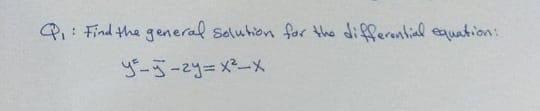 Q₁: Find the general solution for the differential equation:
y″-y′-2y=x²-x